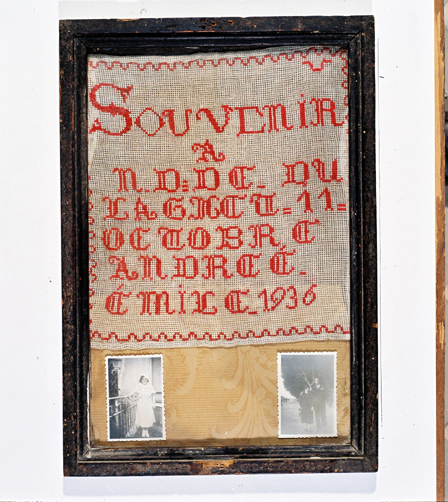 SOUVENIR
A
N.D=DE. DU
LAGHET=11=
OCTOBRE
ANDREÉ.
ÉMILE_1936